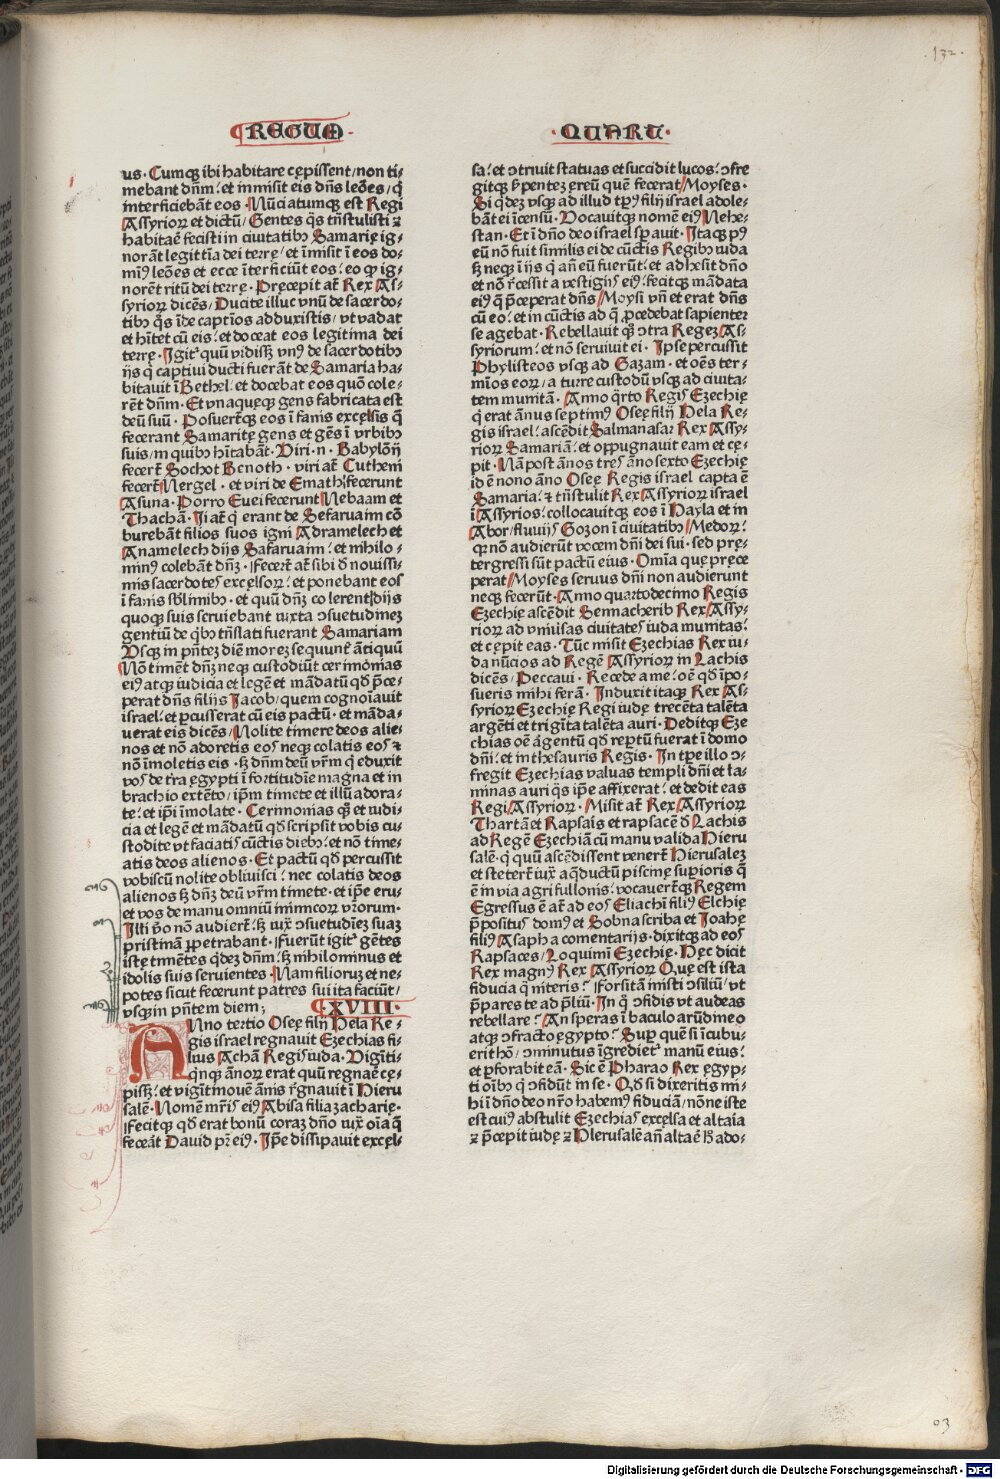 .132.
REGUM
us. Cumq3 ibi habitare cępissent/non ti-
mebant dn̄m: et inmisit eis dn̄s leōes/ q̄
interficiebānt eos. Nūciatumq3 est Regi
Assyrioꝝ et dictū/ Gentes q̄s trn̄stulisti ⁊
habitare fecisti in ciuitatibꝯ Samarię ig-
norāt legittīa dei terrę/ et īmisit ī eos do-
mīꝯ leōes et ecce īterficiūt eos: eo ꝙ ig-
norēt ritū dei terrę. Pręcepit at̄ Rex As-
syrioꝝ dicēs/ Ducite illuc vnū de sacerdo-
tibꝯ q̄s īde captīos adduxistis/ vt vadat
et hītet cū eis: et doceat eos legitima dei
terrę. Igit̄ quū vidissꝫ vnꝯ de sacerdotibꝯ
ijs q̄ captiui ducti fuerāt de Samaria ha-
bitauit ī Bethel: et docebat eos quō cole-
rēt dn̄m. Et vnaquęq3 gens fabricata est
deū suū. Posuert̄q3 eos ī fanis excęlsis q̄
fecerant Samaritę gens et gēs ī vrbibꝯ
suis/ in quibꝯ hītabāt. Viri.n. Babylōn̄
fecert̄ Sochot Benoth. viri at̄ Cutheni
fecert̄ Nergel. et viri de Emath: fecerunt
Asuna. Porro Euei fecerunt Nebaam et
Thachā. Ii at̄ q̄ erant de Sefaruaim cō
burebāt filios suos igni Adramelech et
Anamelech dijs Safaruaim: et nihilo-
minꝯ colebānt dn̄ꝫ. Fecert̄ at̄ sibi đ nouissi-
mis sacerdotes excęlsoꝝ: et ponebant eos
ī fanis sb̄limibꝯ. et quū dn̄ꝫ colerent dijs
quoq3 suis seruiebant iuxta ↄsuetudineꝫ
gentiū de q̄bꝯ trn̄slati fuerant Samariam
Vsq3 in pn̄teꝫ diē moreꝫ sequunt̄ ātiquū
Nō timēt dn̄ꝫ neq3 custodiūt cerimonias
eiꝯ atq3 iudicia et legē et mādatū qđ p̄ce-
perat dn̄s filijs Jacob/ quem cognoīauit
israel: et ꝑcusserat cū eis pactū. et māda-
uerat eis dicēs/ Nolite timere deos alie-
nos et nō adoretis eos neq3 colatis eos ⁊
nō īmoletis eis. sꝫ dn̄m deū vr̄m q̄ eduxit
vos de tr̄a ęgypti ī fortitudīe magna et in
brachio extēto/ ip̄m timete et illū adora-
te: et ip̄i īmolate. Cerimonias qꝫ et iudi-
cia et legē et mādatū qđ scripsit vobis cu-
stodite vt faciatis cūctis diebꝯ: et nō time-
atis deos alienos. Et pactū qđ percussit
vobiscū nolite obliuisci: nec colatis deos
alienos sꝫ dn̄ꝫ deū vr̄m timete. et ip̄e eru-
et vos de manu omniū inimicoꝝ vr̄orum.
Illi v̄o nō audiert̄: sꝫ iux̄ ↄsuetudīeꝫ suaꝫ
pristinā ꝑpetrabant. Fuerūt igit̄ gētes
istę timētes q̄dez dn̄m: sꝫ nihilominus et
idolis suis seruientes. Nam filioruꝫ et ne-
potes sicut fecerunt patres sui ita faciūt/
vsq3 in pn̄tem diem;
XVIII.
ANno tertio Oseę filij Hela Re-
gis israel regnauit Ezechias fi-
lius Achā Regis iuda. Vigīti-
qīnq3 annoꝝ erat quū regnaē cę-
pissꝫ: et vigīti nouē ānis rḡnauit ī Hieru
salē. Nomē mr̄is eiꝯ Abisa filia zacharię.
Fecitq3 qđ erat bonū coraꝫ dn̄o iux̄ oīa q̄
feceāt Dauid pr̄ eiꝯ. Ip̄e dissipauit excęl-
QUARTꝰ.
sa: et ↄtriuit statuas et succidit lucos: ↄfre
gitq3 ꝫpenteꝫ ęreū quē fecerat Moyses.
Si q̄deꝫ vsq3 ad illud tp̄ꝯ filij israel adole-
bāt ei īcensū. Vocauitq3 nomē eiꝯ Nehe-
stan. Et ī dn̄o deo israel sp̄auit. Itaq3 pꝯ
eū nō fuit similis ei de cūctis Regibꝯ iuda
sꝫ neq3 ī ijs q̄ an̄ eū fuerūt: et adhesit dn̄o
et nō r̄cessit a vestigijs eiꝯ: fecitq3 mādata
eiꝯ q̄ p̄ceperat dn̄s Moysi vn̄ et erat dn̄s
cū eo: et in cūctis ad q̄ ꝓcedebat sapienter
se agebat. Rebellauit qꝫ ↄtra Regeꝫ As-
syriorum: et nō seruiuit ei. Ipse percussit
Phylisteos vsq3 ad Gazam. et oēs ter-
mīos eoꝝ/ a turre custodū vsq3 ad ciuita-
tem munitā. Anno q̄rto Regis Ezechię
q̄ erat ānus septimꝯ Oseę filij Hela Re-
gis israel: ascēdit Salmanasaꝛ Rex Assy-
rioꝝ Samariā: et oppugnauit eam et cę-
pit. Nā post ānos tres āno sexto Ezechię
id ē nono āno Oseę Regis israel capta ē
Samaria: ⁊ trn̄stulit Rex Assyrioꝝ israel
ī Assyrios: collocauitq3 eos ī Hayla et in
Abor/ fluuijs Gozon ī ciuitatibꝯ Medoꝝ:
qꝛ nō audierūt vocem dn̄i dei sui. sed prę-
tergressi sūt pactū eius. Omīa quę pręce
perat Moyses seruus dn̄i non audierunt
neq3 fecerūt. Anno quartodecimo Regis
Ezechię ascēdit Sennacherib Rex Assy-
rioꝝ ad vniūsas ciuitates iuda munitas:
et cępit eas. Tūc misit Ezechias Rex iu-
da nūcios ad Regē Assyrioꝝ in Lachis
dicēs/ Peccaui. Recede a me: oē qđ īpo-
sueris mihi ferā. Induxit itaq3 Rex As-
syrioꝝ Ezechię Regi iudę trecēta talēta
argēti et trigīta talēta auri. Deditq3 Eze
chias oē argentū qđ repertū fuerat ī domo
dn̄i: et in thesauris Regis. In tp̄e illo ↄ-
fregit Ezechias valuas templi dn̄i et la-
minas auri q̄s ip̄e affixerat: et dedit eas
Regi Assyrioꝝ. Misit at̄ Rex Assyrioꝝ
Thartā et Rapsais et rapsacē đ Lachis
ad Regē Ezechiā cū manu valida Hieru
salē. q̄ quū ascēdissent venert̄ Hierusaleꝫ
et stetert̄ iux̄ aq̄ductū piscinę suꝑioris q̄
ē in via agri fullonis: vocauert̄q3 Regem
Egressus ē at̄ ad eos Eliachī filiꝯ Elchię
p̄positus domꝯ et Sobna scriba et Ioahę
filiꝯ Asaph a comentarijs. dixitq3 ad eos
Rapsaces/ Loquimī Ezechię. Hęc dicit
Rex magnꝯ Rex Assyrioꝝ Quę est ista
fiducia q̄ niteris? Forsitā īnisti ↄsiliū/ vt
p̄pares te ad p̄liū. In q̄ ↄfidis vt audeas
rebellare? An speras ī baculo arūdineo
atq3 ↄfracto ęgypto? Suꝑ quē si īcubu-
erit hō/ ↄminutus īgrediet̄ manū eius:
et ꝑforabit eā. Sic ē Pharao Rex ęgyp-
ti oībꝯ q̄ ↄfidūt in se. Qđ si dixeritis mi-
hi ī dn̄o deo nr̄o habemꝯ fiduciā/ nōne iste
est cuiꝯ abstulit Ezechias excęlsa et altaīa
⁊ p̄cepit iudę ⁊ Hierusalē an̄ altaē ħ ado-
03
Digitalisierung gefördert durch die Deutsche Forschungsgemeinschaft - DFG